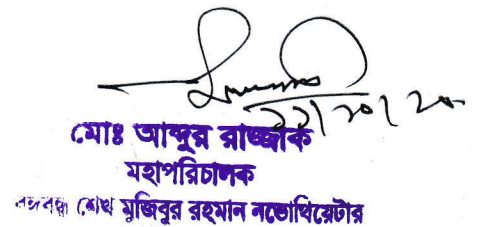 ২১/১০/২০
মোঃ আব্দুর রাজ্জাক
মহাপরিচালক
বঙ্গবন্ধু শেখ মুজিবুর রহমান নভোথিয়েটার